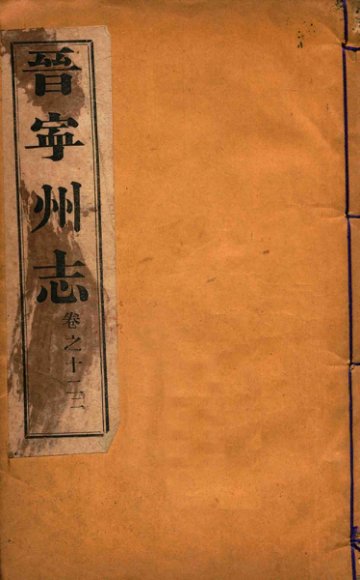 晉寧州志
卷之十一二